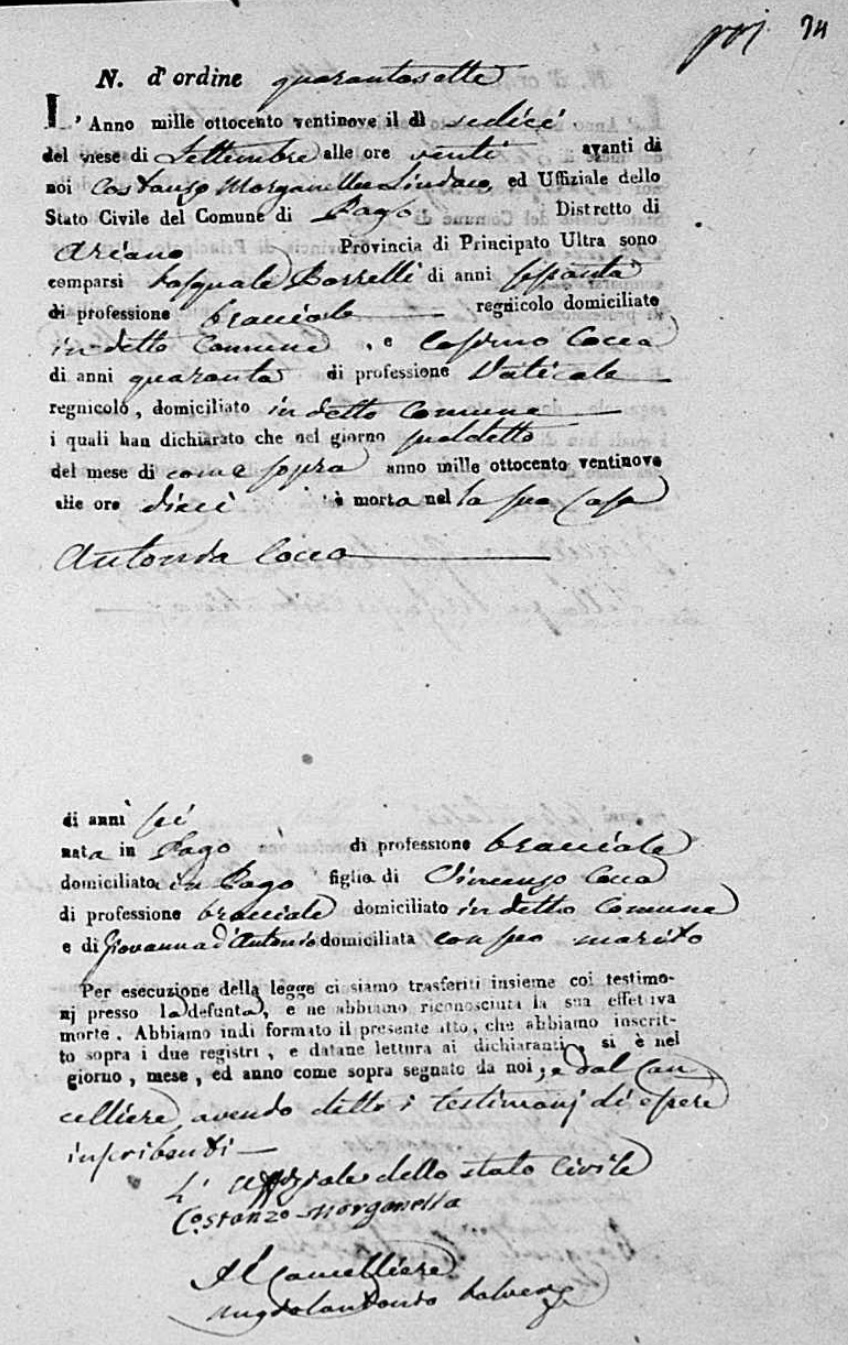 24
N. d'ordine quarantasette
L'Anno mille ottocento ventinove il dì sedici
del mese di Settembre alle ore venti avanti di
noi Costanzo Morganella Sindaco, ed Uffiziale dello
Stato Civile del Comune di Pago Distretto di
Ariano Provincia di Principato Ultra sono
comparsi Pasquale Borrelli di anni
di professione bracciale regnicolo domiciliato
in detto Comune, e Cosimo Cocca
di anni quaranta di professione Vaticale
regnicolo, domiciliato in detto Comune
i quali han dichiarato che nel giorno suddetto
del mese di come sopra anno mille ottocento ventinove
alle ore dieci è morta nella sua casa
Antonia Cocca
di anni sei
nata in Pago di professione bracciale
domiciliata in Pago figlia di Vincenzo Cocca
di professione bracciale domiciliato in detto Comune
e di Giovanna d'Antonio domiciliata con suo marito
Per esecuzione della legge ci siamo trasferiti insieme coi testimo-
nj presso la defunta, e ne abbiamo riconosciuta la sua effettiva
morte. Abbiamo indi formato il presente atto, che abbiamo inscrit-
to sopra i due registri, e datane lettura ai dichiaranti, si è nel
giorno, mese, ed anno come sopra segnato da noi, e dal Can
celliere avendo detto i testimonj di essere
inscribenti
L'Uffiziale dello stato Civile
Costanzo Morganella
Il Cancelliere